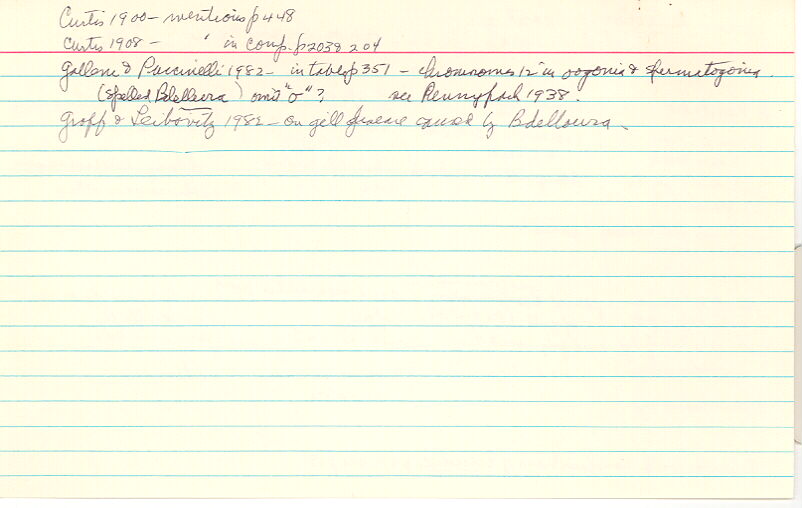 Curtis 1900 - mentions p 448
Curtis 1908 - " in comp. p 203 & 204
Galleni & Puccinelli 1982 - in table p 351 - chromosomes 12 in oogonia & spermatogonia.
(spelled Bdelleura) omit "o"? see Pennypack 1938.
Groff & Leibovitz 1982 - on gill disease caused by Bdelloura.